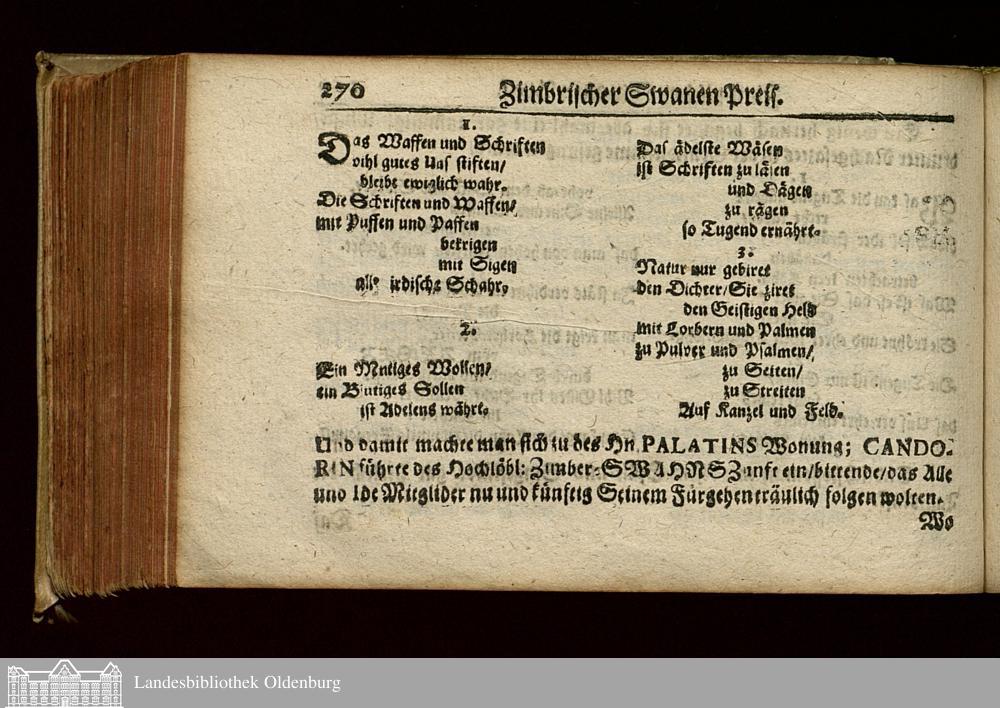 270 Zimbrischer Swanen Preis.
1.
Das Waffen und Schriften
vihl gutes Uns stiften/
bleibt ewiglich wahr.
Die Schriften und Waffen/
mit Puffen und Paffen
bekrigen
mit Sigen
alle irdische Schahr,
2.
Ein Mutiges Wollen/
ein Blutiges Sollen
ist Adelens währt.
Das ädelste Wäsen
ist Schriften zu läsen
und Dägen
zu rägen
so Tugend ernährt.
3.
Natur nur gebiret
den Dichter/Sie ziret
den Geistigen Held
mit Lorbern und Palmen
zu Pulver und Psalmen/
zu Seiten/
zu Streiten
Auf Kanzel und Feld.
Und damit machte man sich zu des Hn. PALATINS Wonung; CANDO-
RIN führte des Hochlöbl: Zimber-SWAHNS Zunft ein/bittende/das Alle
und Ide Mitglider nu und künftig Seinem Fürgehen träulich folgen wolten.
Wo
Landesbibliothek Oldenburg